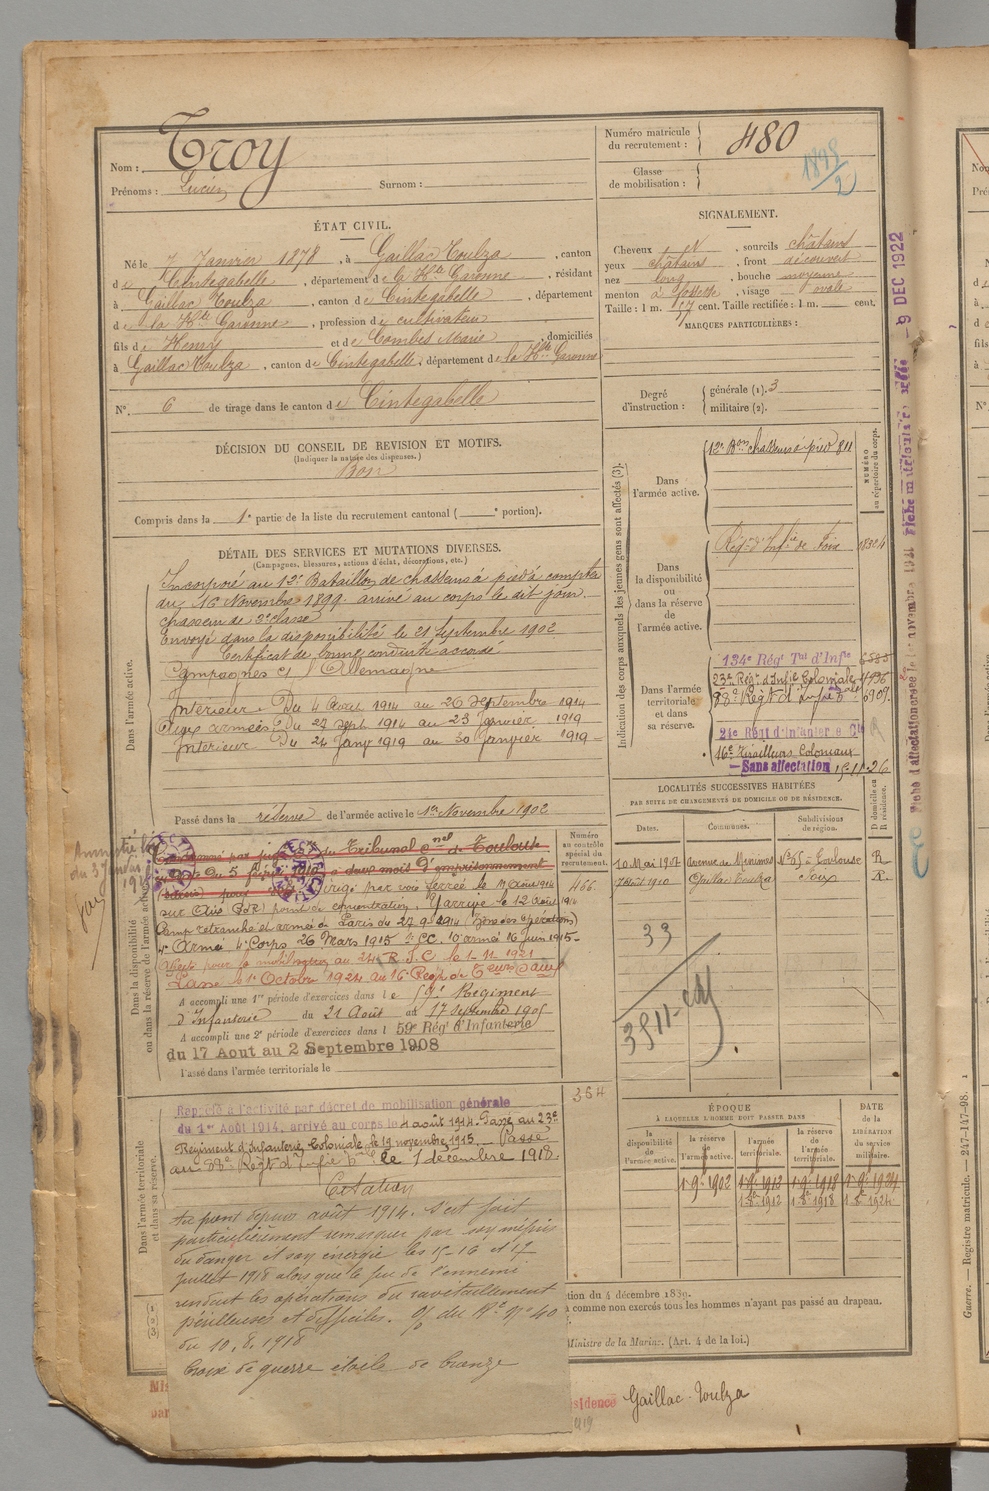 Nom : Troy
Prénoms : Lucien Surnom :
Numéro matricule du recrutement : 480
Classe de mobilisation : 1898/2
ÉTAT CIVIL.
Né le 7 Janvier 1878, à Gaillac Toulza, canton
de Cintegabelle, département de la Hte Garonne, résidant
à Gaillac Toulza, canton de Cintegabelle, département
de la Hte Garonne, profession de cultivateur
fils de Henry et de Combes Marie, domiciliés
à Gaillac Toulza, canton de Cintegabelle, département de la Hte Garonne
N° 6 de tirage dans le canton de Cintegabelle
SIGNALEMENT.
Cheveux et N, sourcils châtains
yeux châtains, front découvert
nez long, bouche moyenne
menton à fossette, visage ovale
Taille : 1 m. 57 cent. Taille rectifiée : 1 m. cent.
MARQUES PARTICULIÈRES :
Degré d'instruction : générale (1). 3
militaire (2).
DÉCISION DU CONSEIL DE REVISION ET MOTIFS.
(Indiquer la nature des dispenses.)
Bon
Compris dans la 1e partie de la liste du recrutement cantonal ( e portion).
DÉTAIL DES SERVICES ET MUTATIONS DIVERSES.
(Campagnes, blessures, actions d'éclat, décorations, etc.)
Dans l'armée active.
Incorporé au 12e Bataillon de chasseurs à pied à compter
du 16 Novembre 1899. arrivé au corps le dit jour.
chasseur de 2e classe
Envoyé dans la disponibilité le 21 Septembre 1902
Certificat de bonne conduite accordé
Campagnes Ct l'Allemagne
Intérieur Du 4 Août 1914 au 26 Septembre 1914
Aux armées Du 27 Sept 1914 au 23 Janvier 1919
Intérieur Du 24 Janv 1919 au 30 Janvier 1919
Passé dans la réserve de l'armée active le 1er Novembre 1902
Dans la disponibilité ou dans la réserve de l'armée active
Amnistié
du Tribunal Cnel de Toulouse
du 5 à deux mois d'emprisonnement
pour dirigé par voie ferrée le 11 Août 1914
point de concentration, y arrive le 12 Août 1914
Camp retranché et armée de Paris du 27 9 1914 (Zone des opérations)
4e Armée 4e Corps 26 Mars 1915 10e armée 16 juin 1915
au 24e R.I.C. le 1-11 1921
Passé le 1er Octobre 1924 au 16e Regt de
A accompli une 1re période d'exercices dans le 59e Régiment
d'Infanterie du 21 Août au 17 Septembre 1905
A accompli une 2e période d'exercices dans l 59e Rég' d'Infanterie
du 17 Aout au 2 Septembre 1908
Passé dans l'armée territoriale le
Numéro au contrôle spécial du recrutement.
466
364
Dans l'armée territoriale et dans sa réserve.
Rappelé à l'activité par décret de mobilisation générale
du 1er Août 1914, arrivé au corps le 4 août 1914. Passé au 23e
Régiment d'Infanterie Coloniale le 19 novembre 1915. Passé
au 88e Régt d'Infie le 1 décembre 1918.
Citation
Au front depuis août 1914. S'est fait
particulièrement remarquer par son mépris
du danger et son énergie les 15-16 et 17
Juillet 1918 alors que le feu de l'ennemi
rendait les opérations du ravitaillement
périlleuses et difficiles. O/ du Rt N° 40
du 10. 8. 1918
Croix de guerre étoile de bronze
Indication des corps auxquels les jeunes gens sont affectés (3).
NUMÉRO au répertoire du corps.
Dans l'armée active.
12e Bon chasseurs à pied 811
Dans la disponibilité ou dans la réserve de l'armée active.
Régt d'Infie de Foix
Dans l'armée territoriale et dans sa réserve.
134e Rég' Tal d'Infie 6585
23e Régt d'Infie Coloniale
88e Régt d'Infie 6909
24e Régt d'Infanterie Cle
16e Tirailleurs Coloniaux
Sans affectation 15-11-26
9 DEC 1922
LOCALITÉS SUCCESSIVES HABITÉES
PAR SUITE DE CHANGEMENTS DE DOMICILE OU DE RÉSIDENCE.
Dates. Communes. Subdivisions de région. D domicile ou R résidence.
10 Mai 1907 Avenue des Minimes N° 65 à Toulouse R
1910 Gaillac Toulza Foix R.
33
3511
ÉPOQUE
À LAQUELLE L'HOMME DOIT PASSER DANS
la disponibilité de l'armée active. la réserve de l'armée active. l'armée territoriale. la réserve de l'armée territoriale.
DATE de la LIBÉRATION du service militaire.
1-9e 1902 1-9e 1912 1-9e 1918 1-9e 1924
1 8e 1912 1 8e 1918 1 8e 1924
tion du 4 décembre 1889.
a comme non exercés tous les hommes n'ayant pas passé au drapeau.
Ministre de la Marine. (Art. 4 de la loi.)
sidence Gaillac-Toulza
Guerre. — Registre matricule. — 247-147-98.